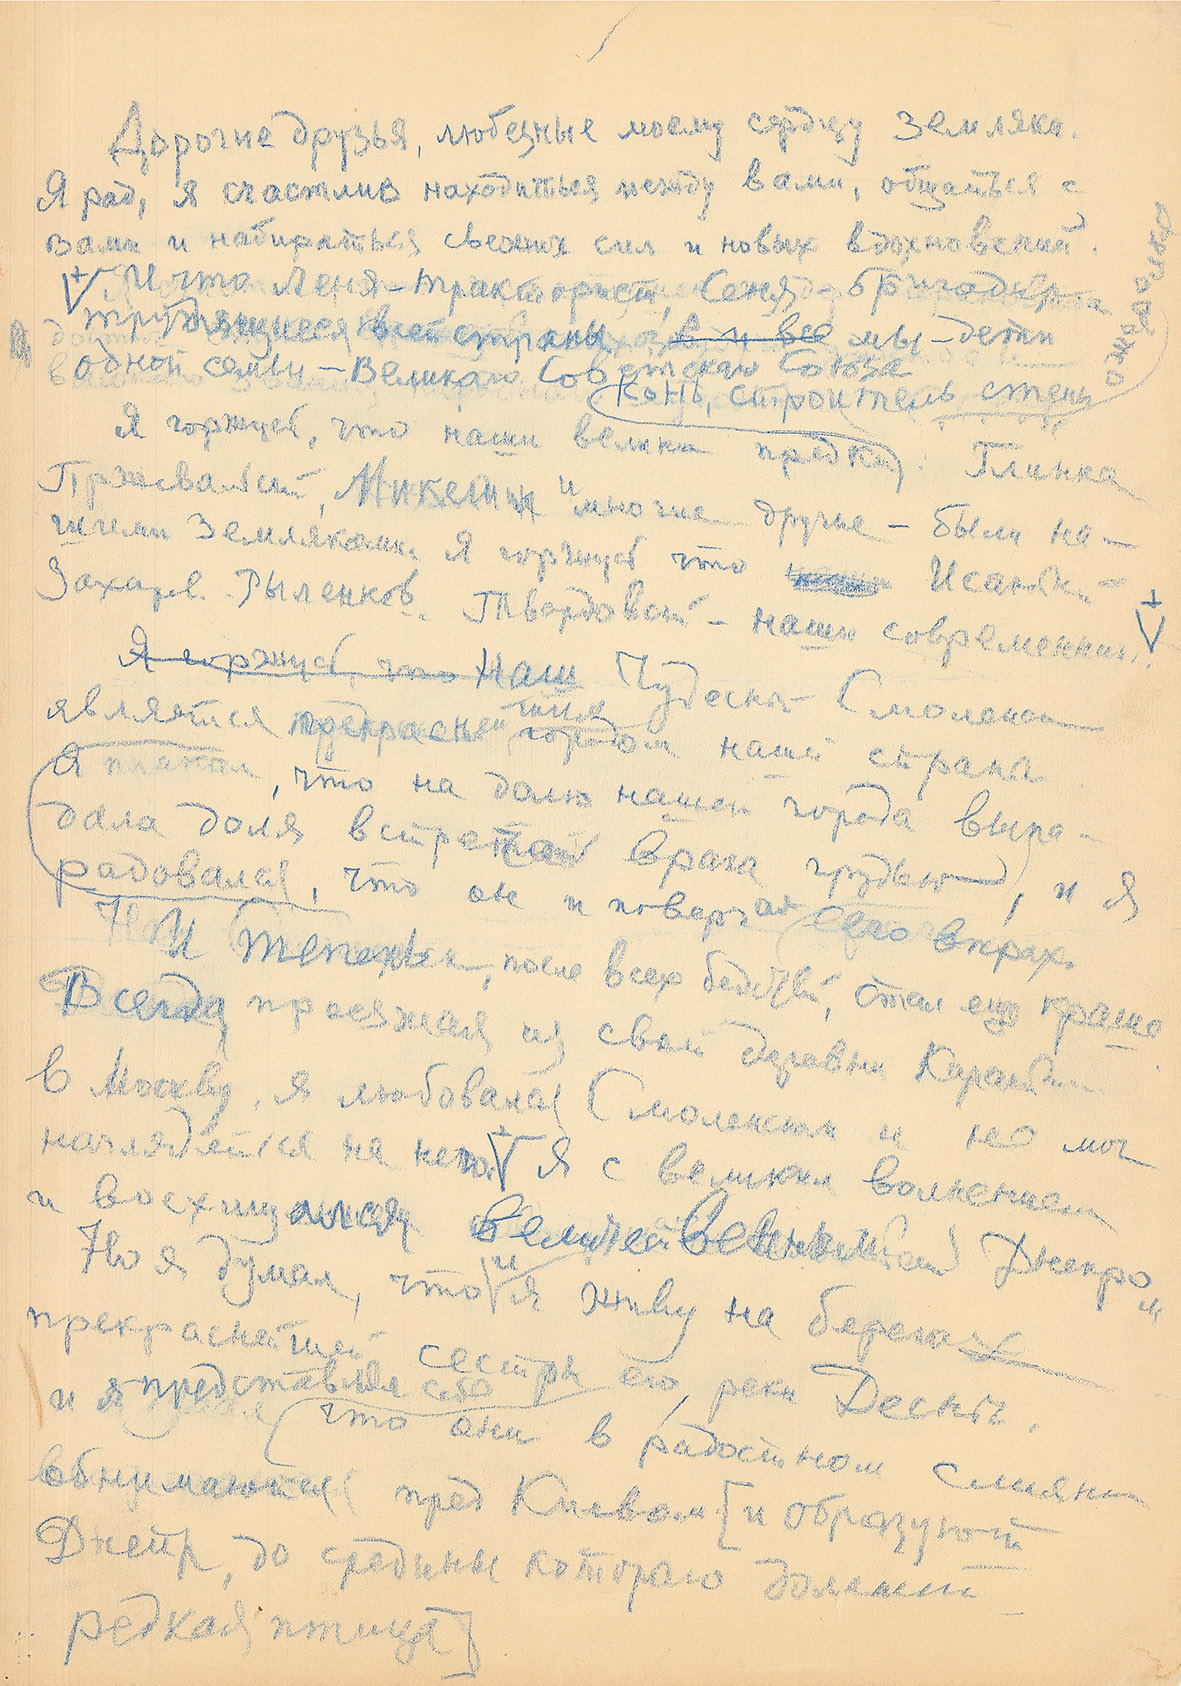 Дорогие друзья, любезные моему сердцу земляки.
Я рад, я счастлив находиться между вами, общаться с
вами и набираться свежих сил и новых вдохновений.
И что Леня-тракторист, Сеня-бригадир
трудящиеся всей страны, и все мы-дети
одной семьи-Великого Советского Союза
Конь, строитель стены
Я горжусь, что наши великие предки: Глинка
Пржевальский, Микешин и многие другие - были на-
шими земляками. Я горжусь что Исаковский
Захаров. Рыленков. Твардовский - наши современники.
Я горжусь, что Наш Чудесный Смоленск
является прекраснейшим городом нашей страны.
Я плакал, что на долю нашего города выпа-
дала доля встречать врага грудью, и я
радовался, что он и повергал его впрах.
И Теперь, после всех бедствий, стал еще краше
Всегда проезжая из своей деревни
в Москву, я любовался Смоленском и не мог
наглядеться на него. Я с великим волнением
и восхищался величественным Днепром
Но я думал, что и я живу на берегах
прекраснейшей сестры его, реки Десны.
и я представлял себе
что они в радостном слиянии
обнимаются пред Киевом [и образуют
Днепр, до средины которого долетит
редкая птица]